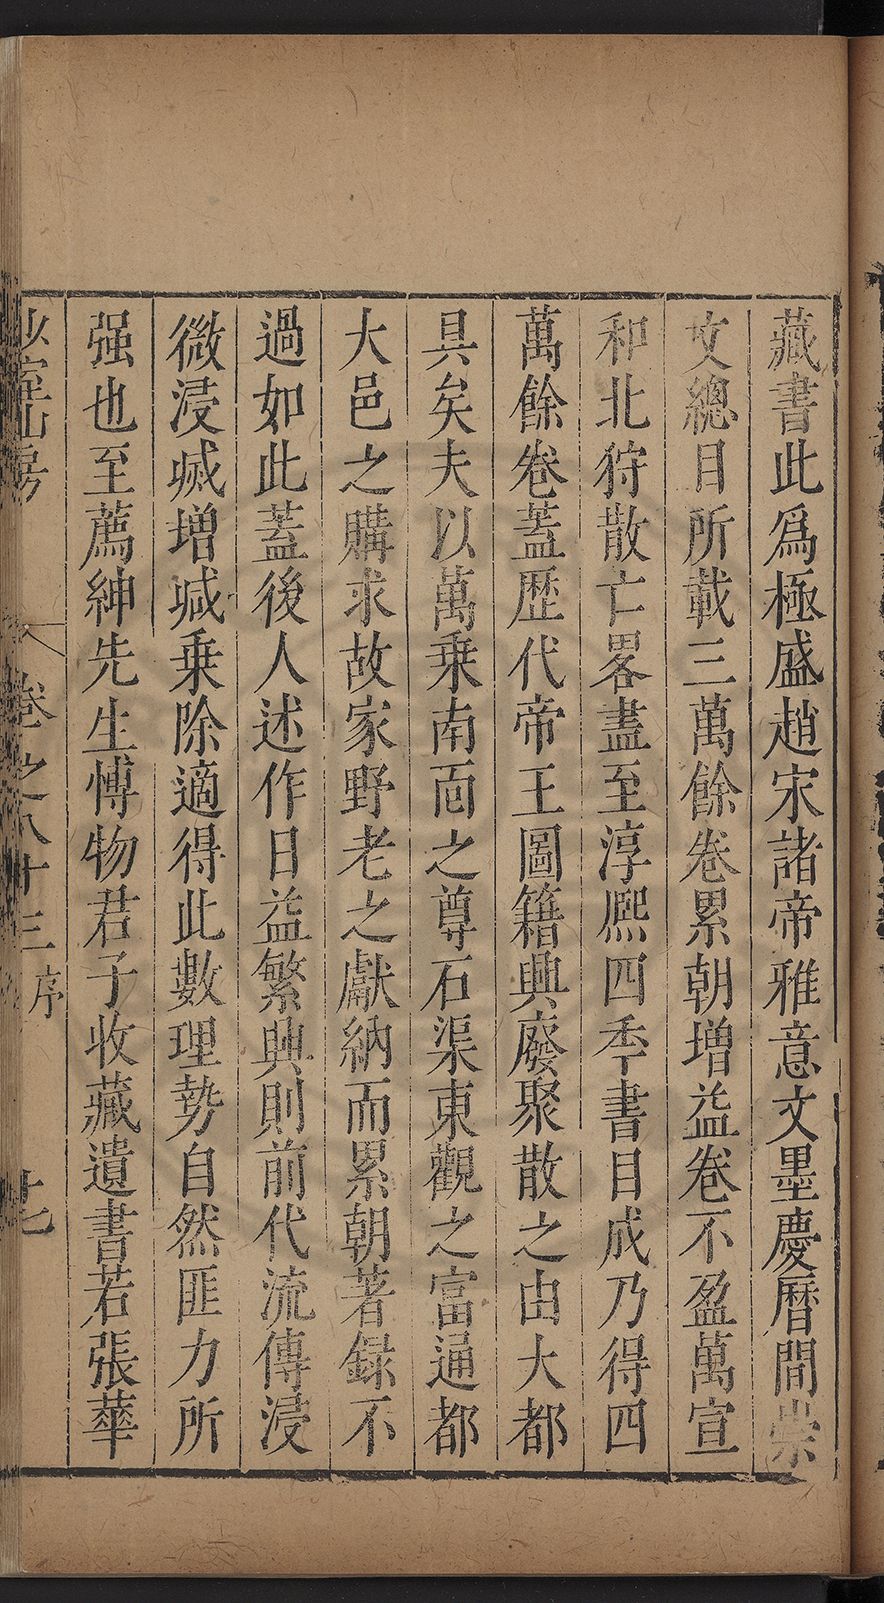 藏書此爲極盛趙宋諸帝雅意文墨慶曆間崇
文總目所載三萬餘卷累朝增益卷不盈萬宣
和北狩散亡畧盡至淳熙四秊書目成乃得四
萬餘卷蓋歷代帝王圖籍興廢聚散之由大都
具矣夫以萬乗南面之尊石渠東觀之富通都
大邑之購求故家野老之獻納而累朝著録不
過如此蓋後人述作日益繁興則前代流傳浸
微浸㓕增㓕乗除適得此數理勢自然匪力所
强也至薦紳先生博物君子收藏遺書若張華
少室山房
卷之八十三
序
十七